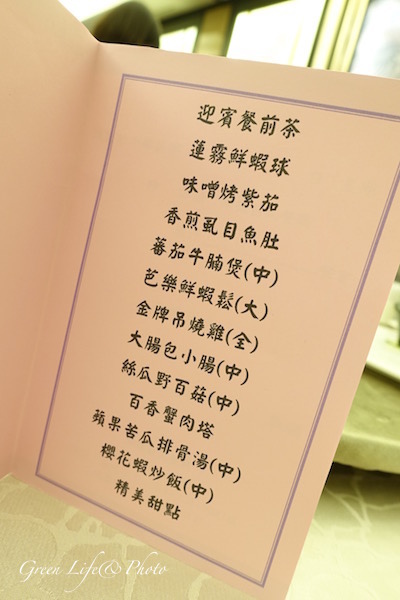 迎賓餐前茶
蓮霧鮮蝦球
味噌烤紫茄
香煎虱目魚肚
蕃茄牛腩煲(中)
芭樂鮮蝦鬆(大)
金牌吊燒雞(全)
大腸包小腸(中)
絲瓜野百菇(中)
百香蟹肉塔
蘋果苦瓜排骨湯(中)
櫻花蝦炒飯(中)
精美甜點
Green Life@Photo